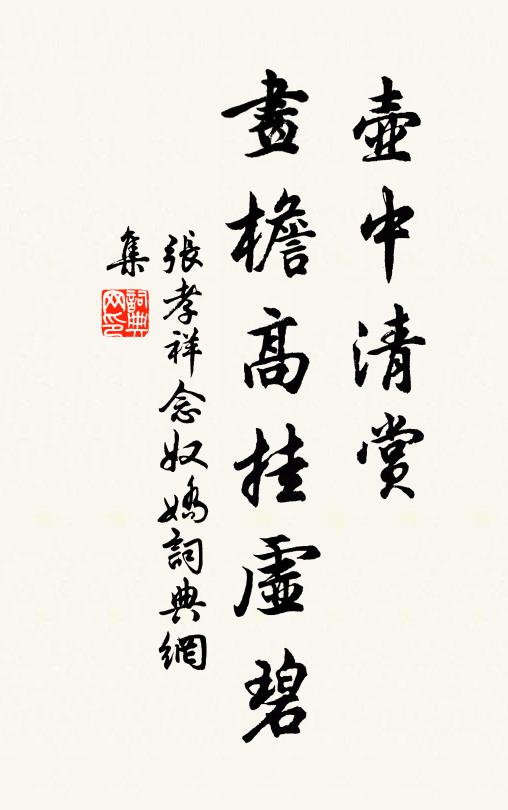 壺中清賞
畫檐高挂虛碧
張孝祥念奴嬌詞典網
集
詞典網印